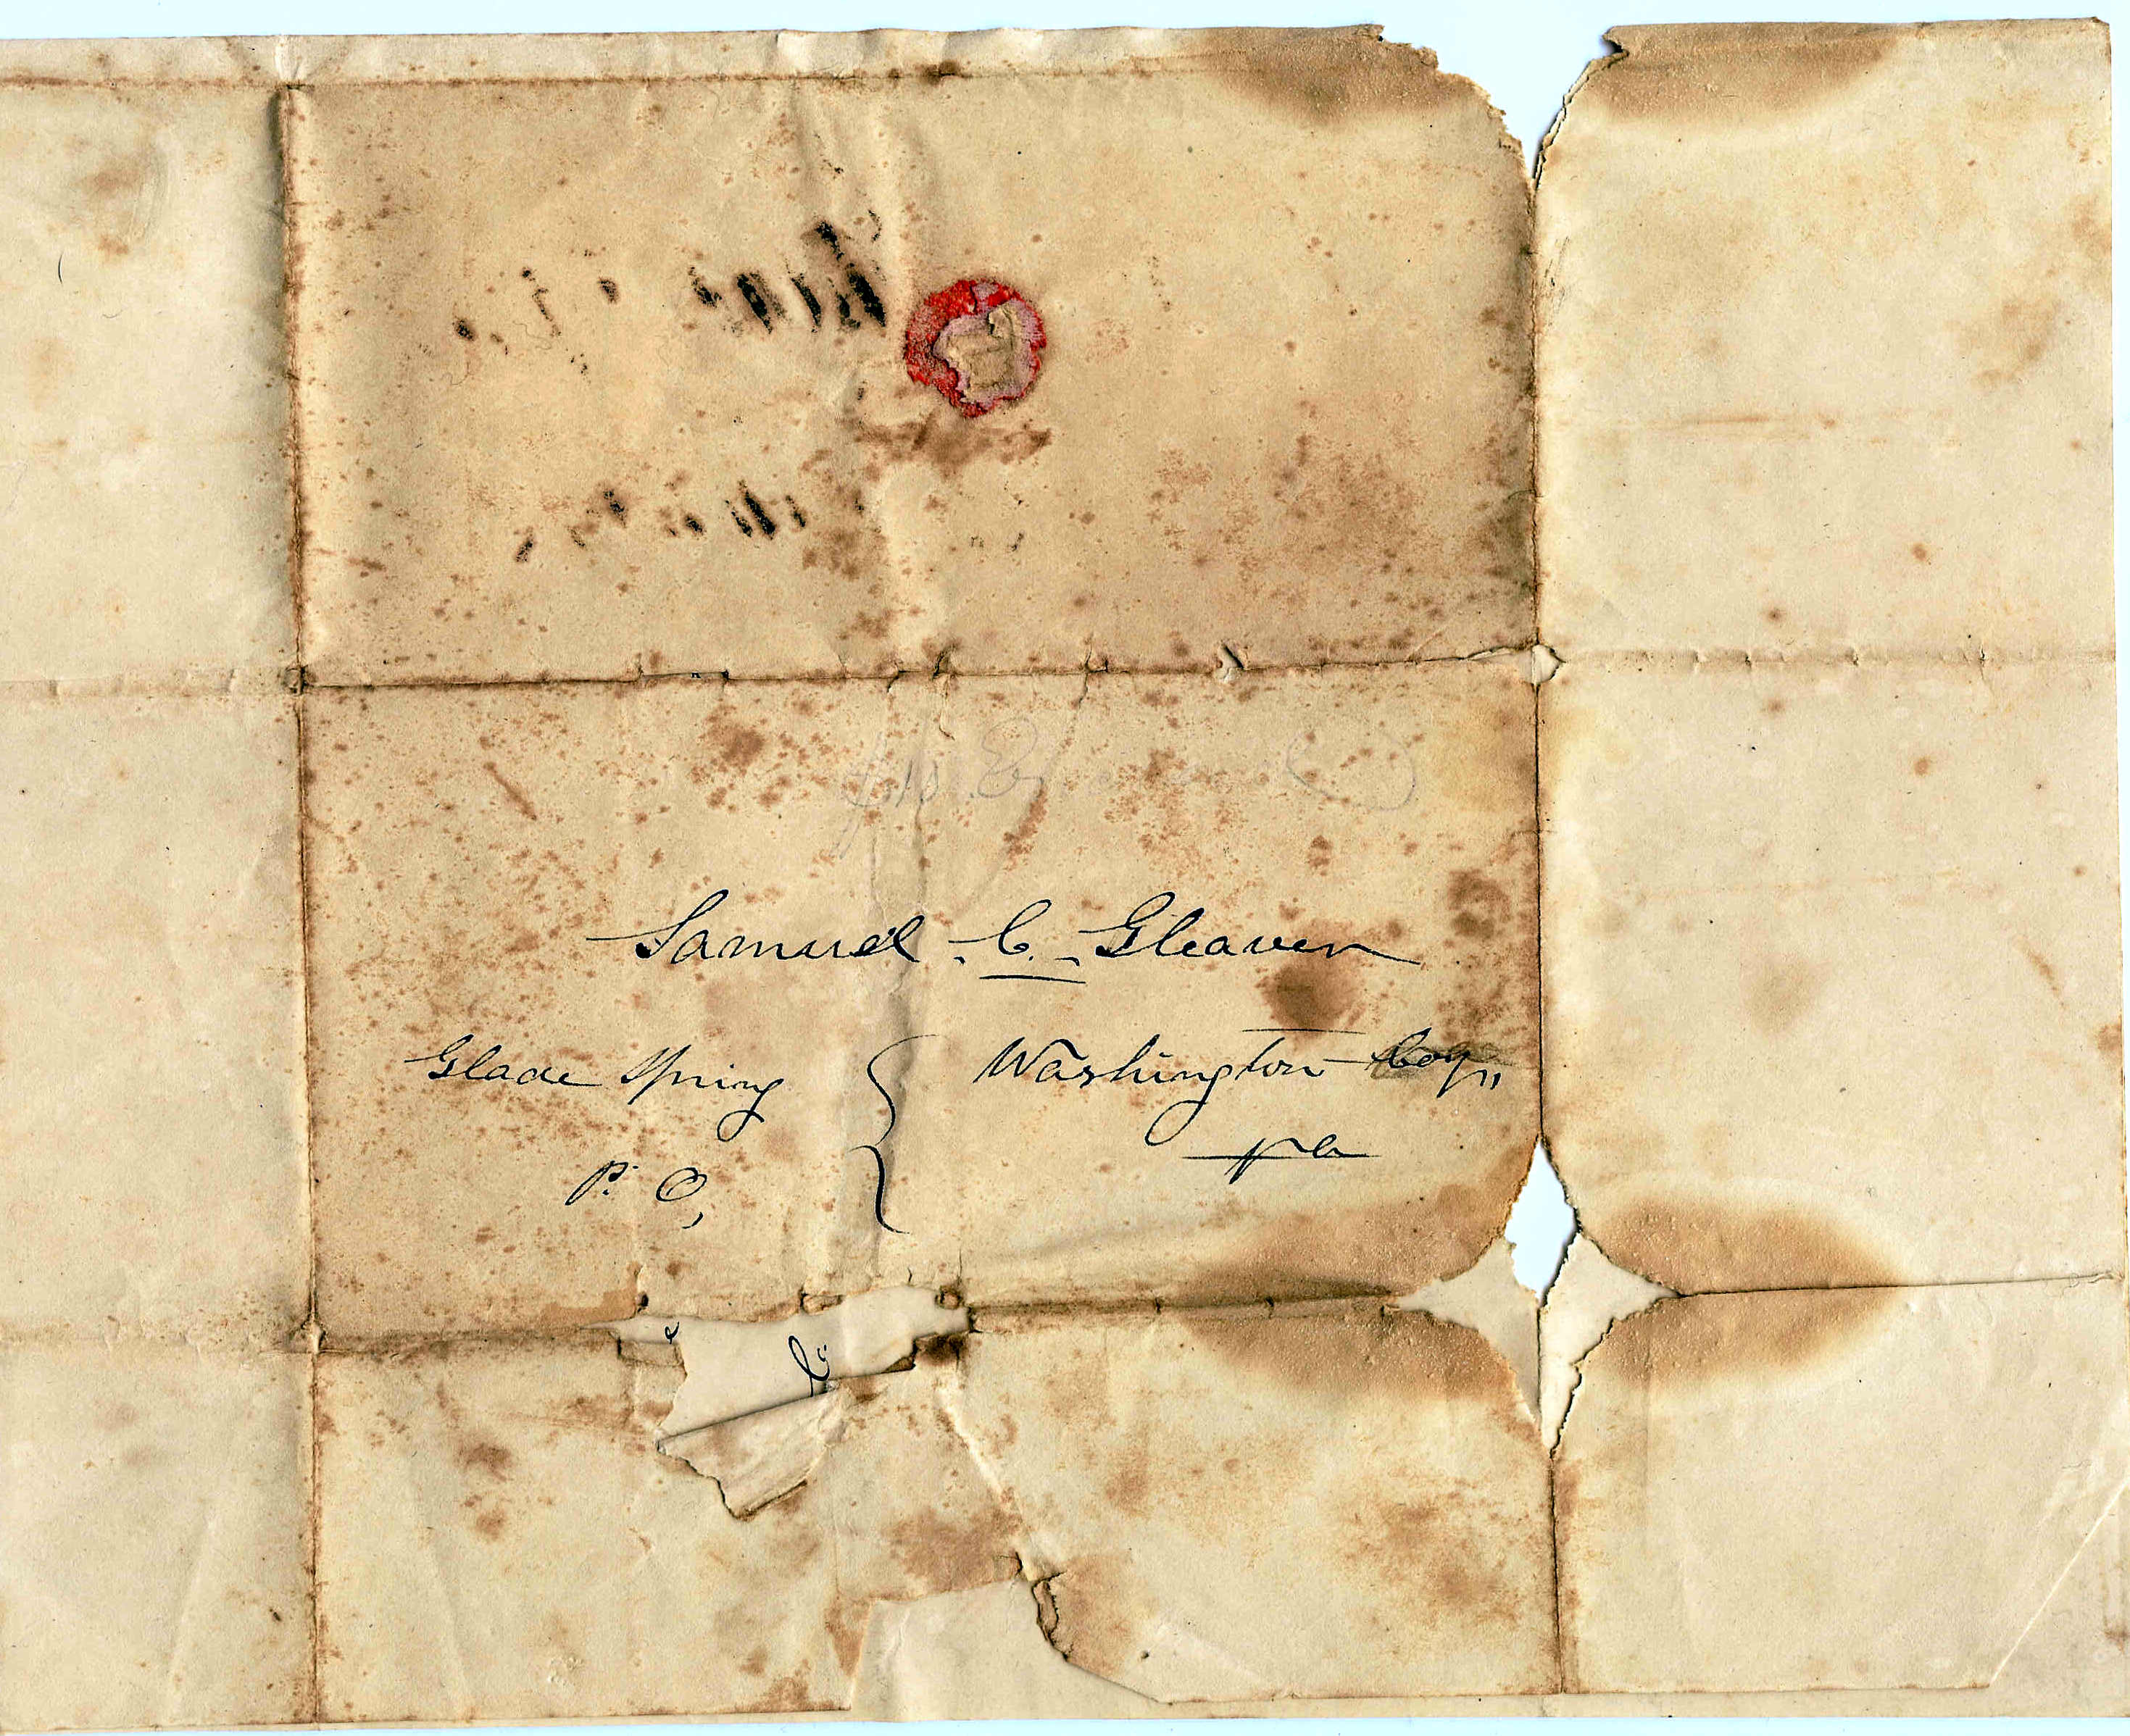 Samuel . C. . Gleaven
Glade Spring
P. O,
Washington Coy,,
Va